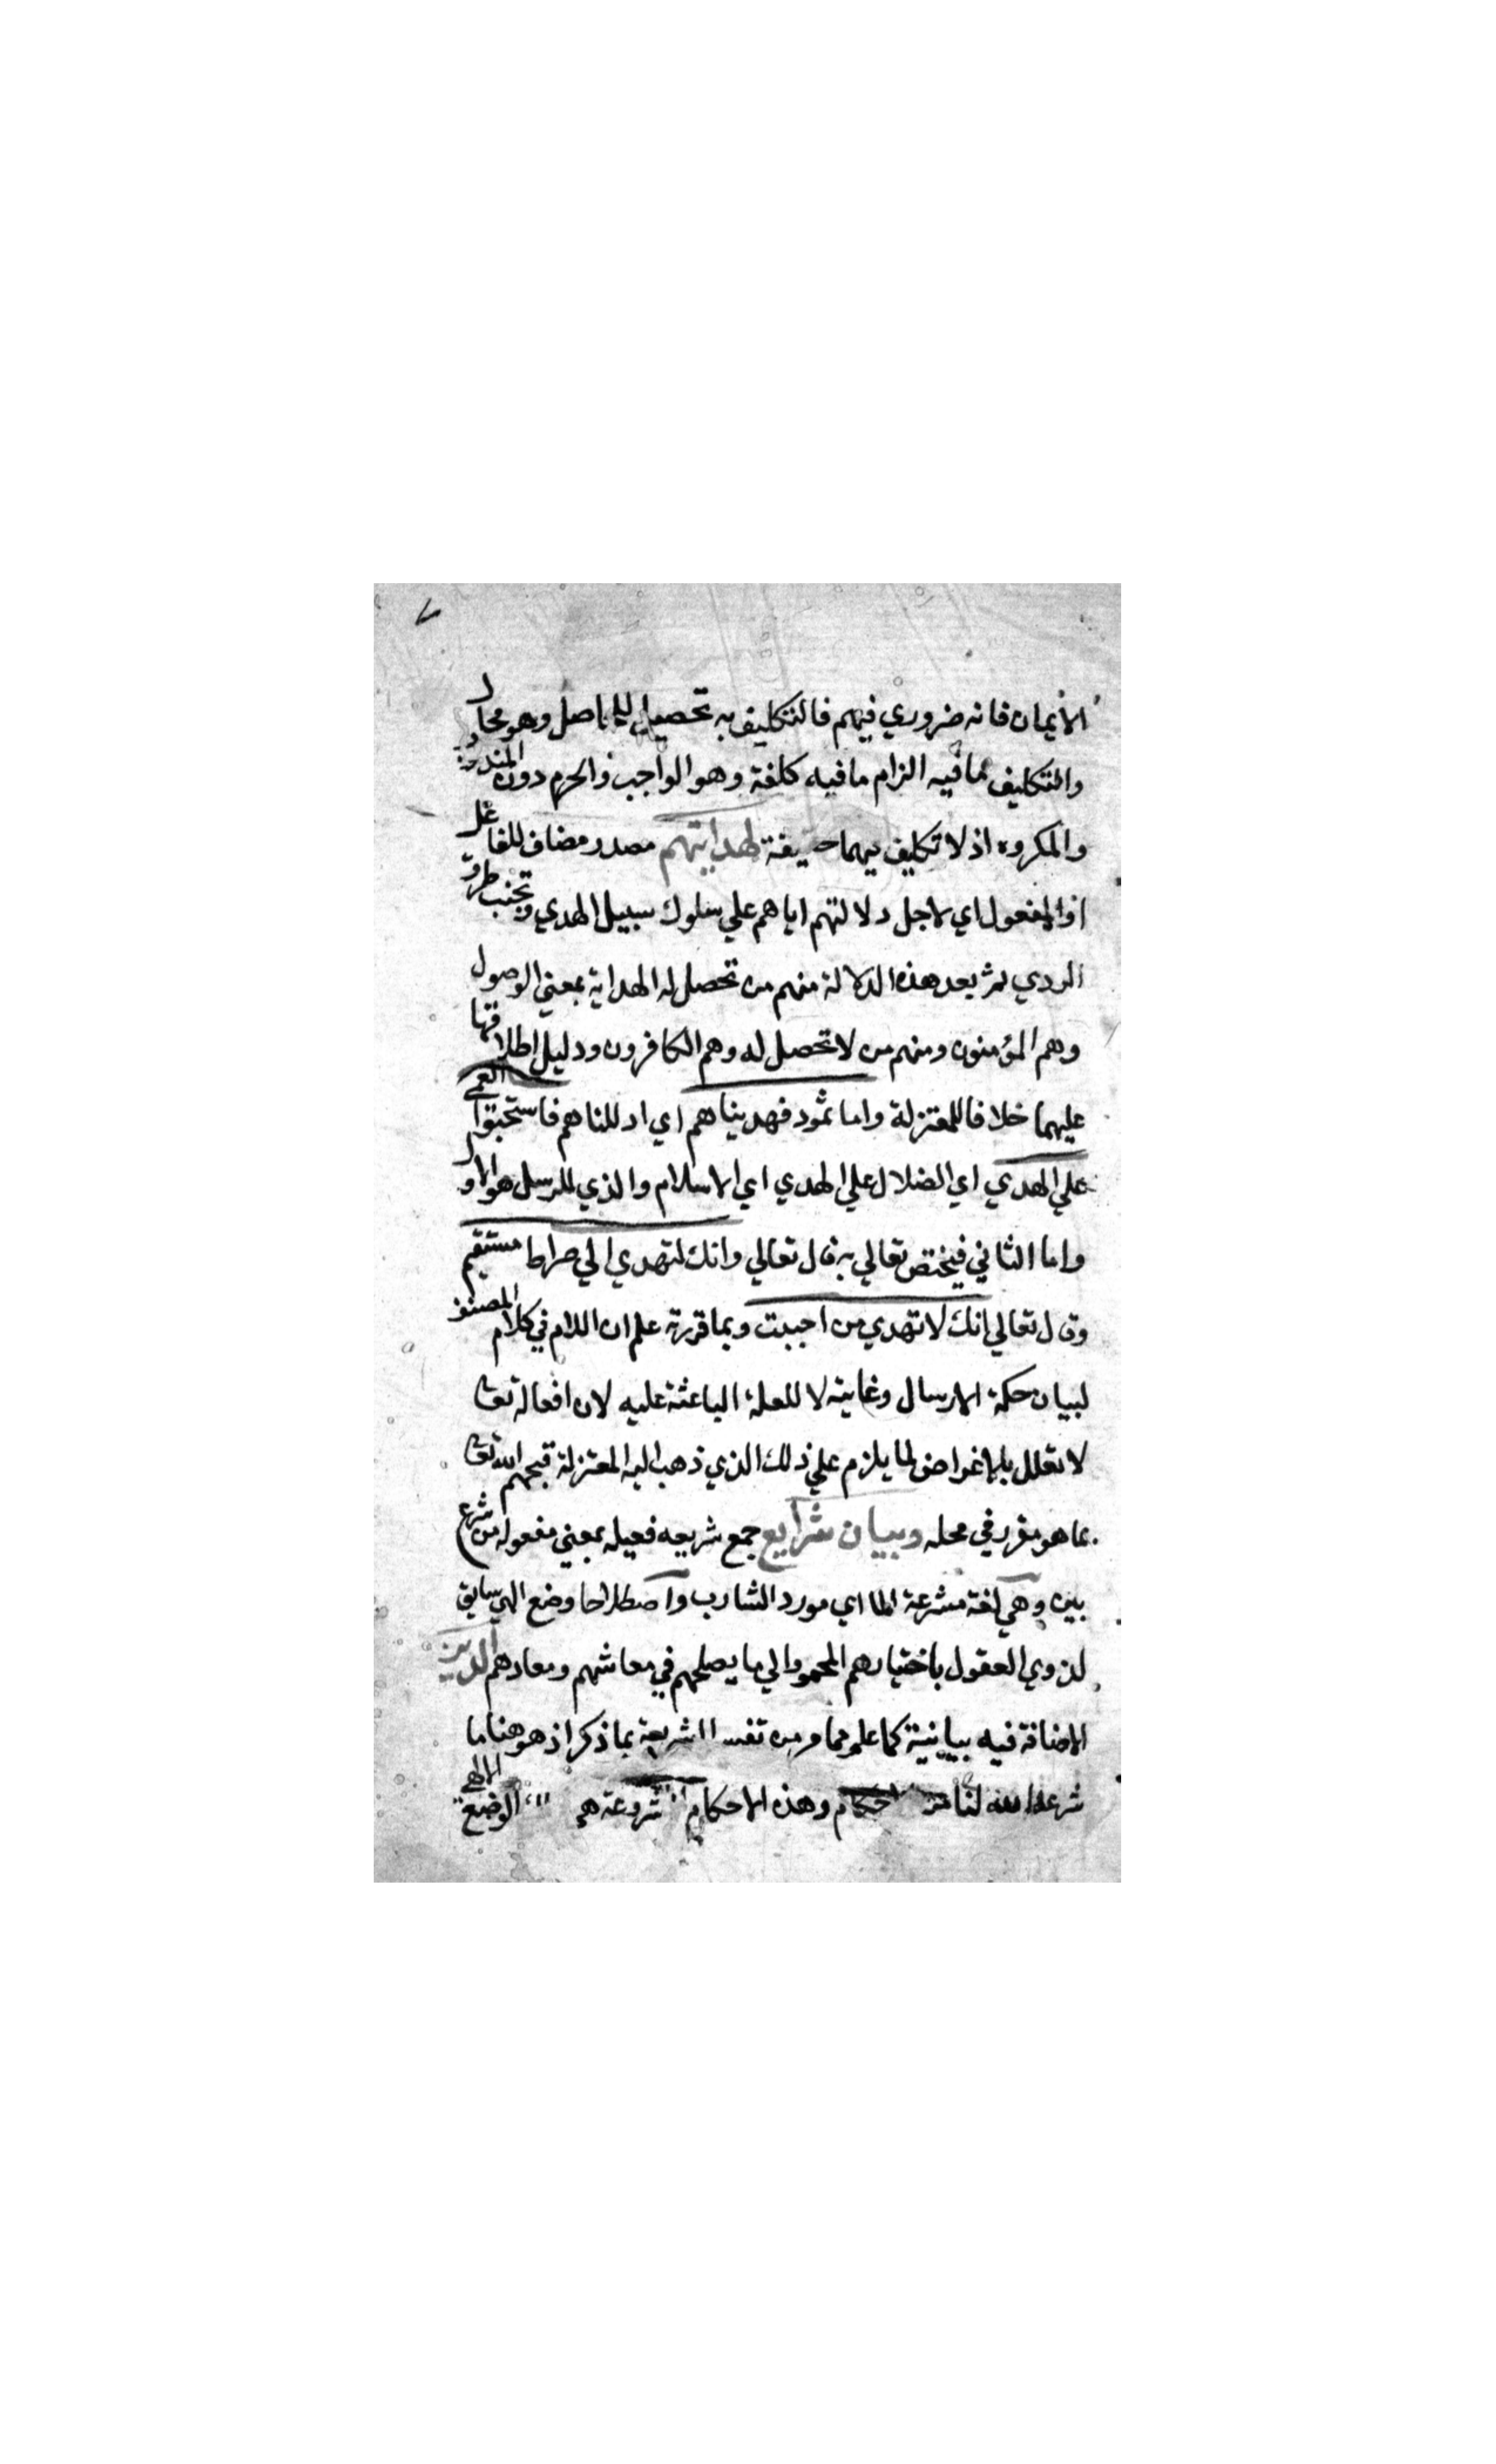 الأيمان فانه ضروري فيهم فالتكليف به تحصيل للحاصل وهو محال
والتكليف مافيه الزام مافيه كلفة وهو الواجب والحرم دون المندوب
والمكروه اذ لا تكليف بهما حقيقة لهدايتهم مصدر مضاف للفاعل
او المفعول اي لاجل دلالتهم اياهم علي سلوك سبيل الهدي وتجنب طرق
الردي ثم بعد هذه الدلالة منهم من تحصل له الهداية بمعني الوصول
وهم المؤمنون ومنهم من لا تحصل له وهم الكافرون ودليل اطلاقها
عليهما خلافا للمعتزلة واما ثمود فهديناهم اي ادللناهم فاستحبوا العمي
علي الهدي اي الضلال علي الهدي اي الاسلام والذي للرسل هو الاول
واما الثاني فيختص تعالي به قال تعالي وانك لتهدي الي صراط مستقيم
وقال تعالي انك لا تهدي من احببت وبما قررته علم ان اللام في كلام المصنف
لبيان حكمة الارسال وغايته لا للعلة الباعثة عليه لان افعاله تعا
لا تعلل بالاغراض لما يلزم علي ذلك الذي ذهب اليه المعتزلة قبحهم الله تعا
بما هو مقرر في محله وبيان شرايع جمع شريعه فعيله بمعني مفعوله من شرع
بين وهي لغة مشرعة الما اي مورد الشارب واصطلاحا وضع الهي سايق
لذوي العقول باختيارهم المحمود الي ما يصلحهم في معاشهم ومعادهم الدين
الاضافة فيه بيانية كما علم مما مر من تفسير الشريعة بما ذكر اذ هو هنا ما
شرعه الله لنا من احكام وهذه الاحكام المشروعة هي الوضع الالهي